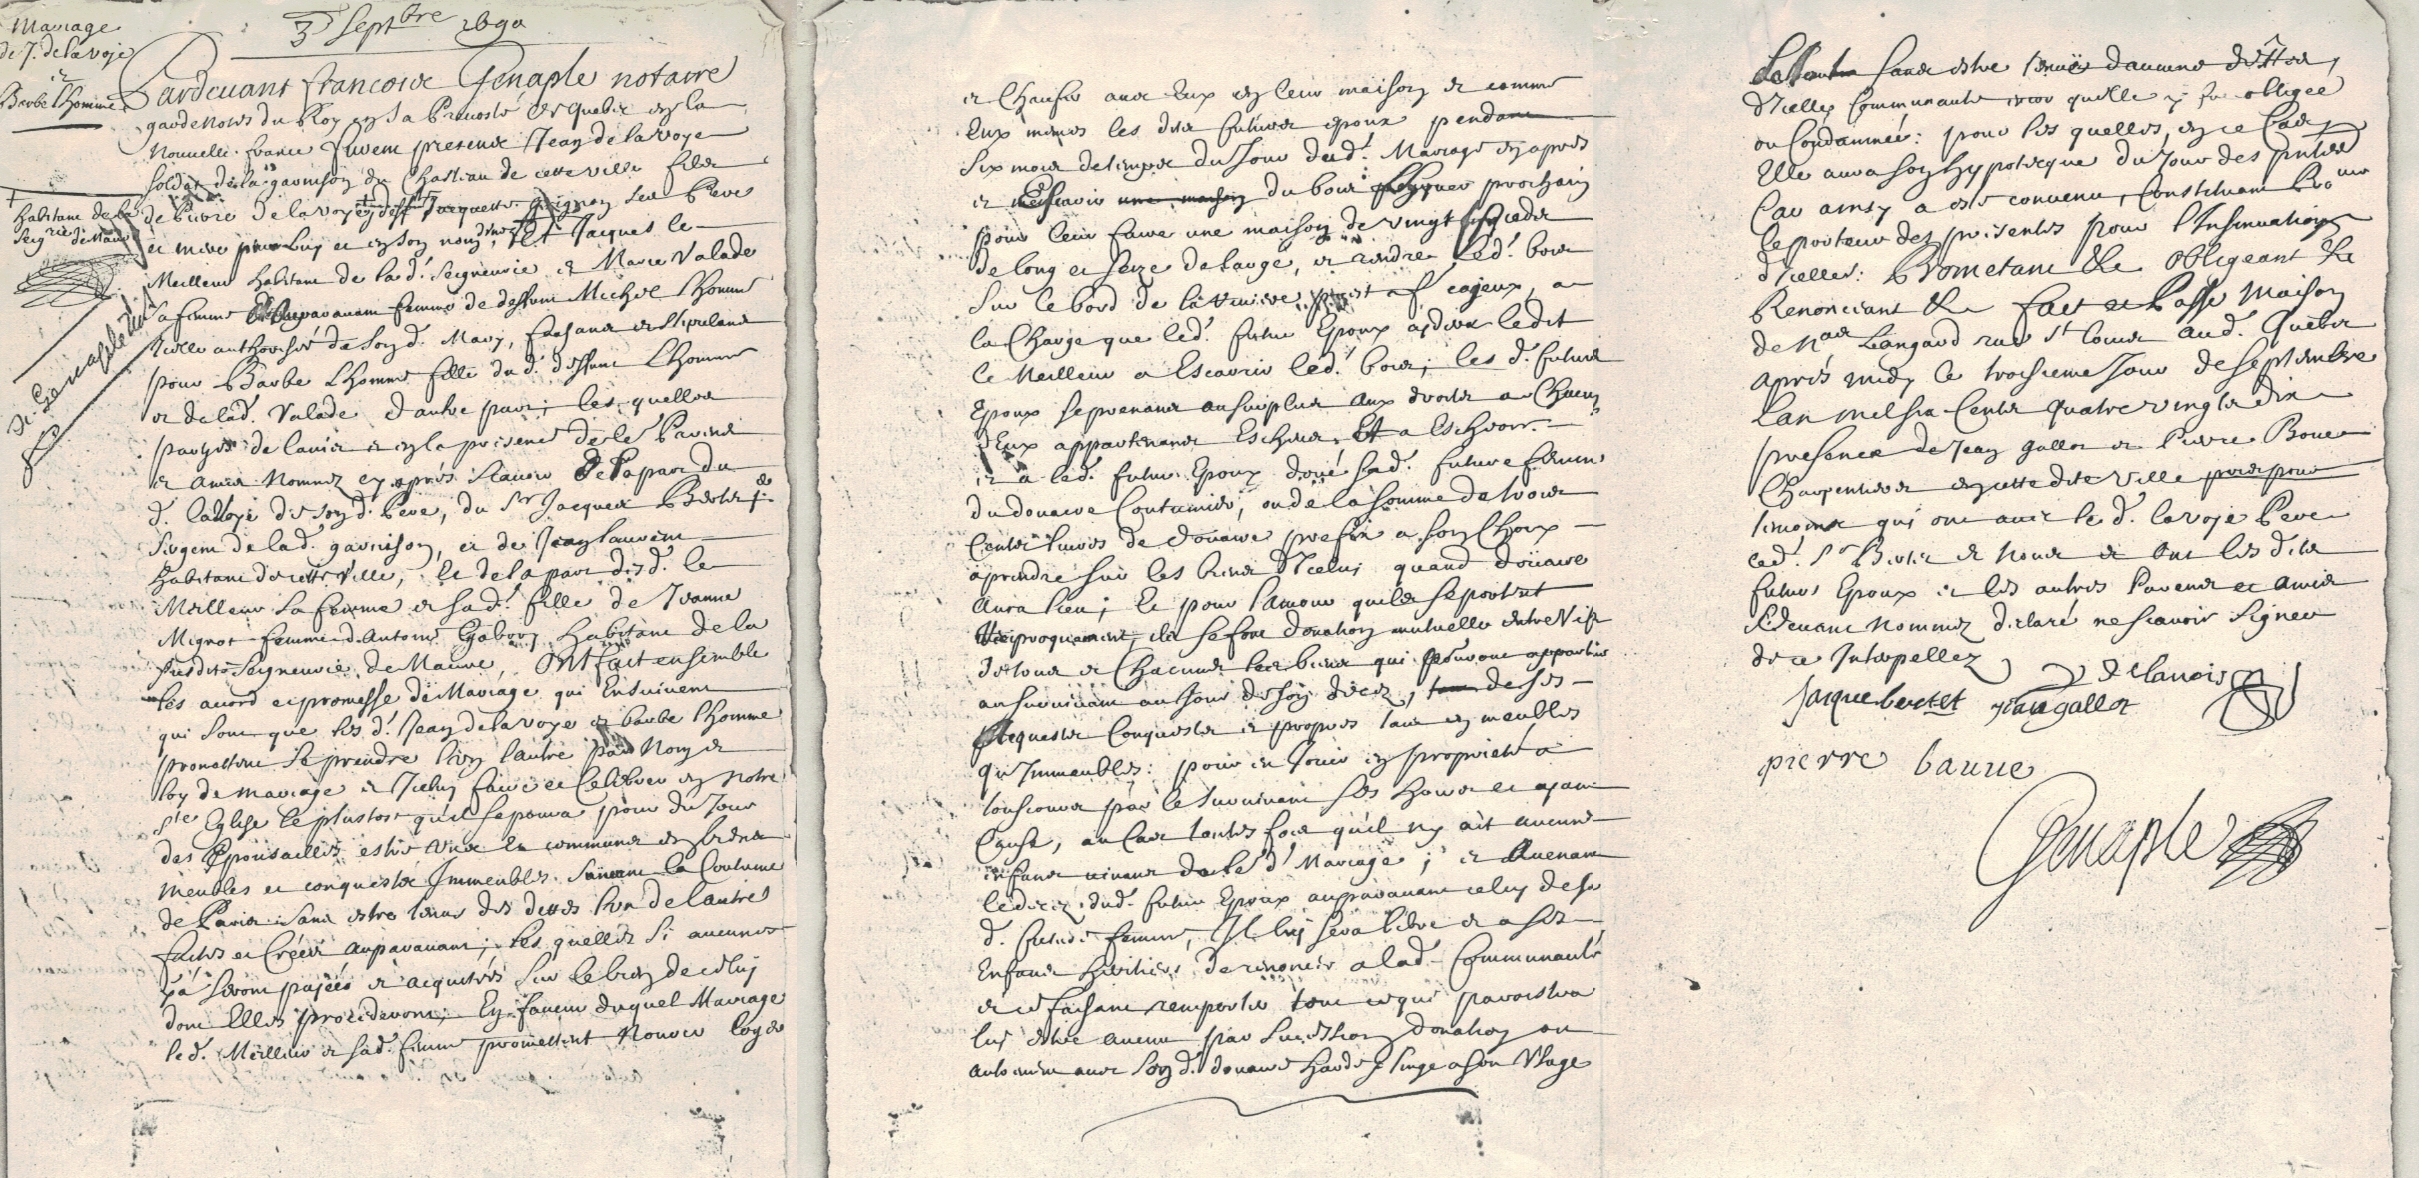 Mariage
de J. de la voÿe
et
Barbe Lhomme
3 Septbre 1690
Pardevant francois Genaple notaire
gardenotes du Roy en sa Prevosté de Quebec en la
Nouvelle france furent presens Jean de la voye
soldat de la garnison du Chasteau de cette ville fils
de Pierre de la voye et de deff. Jacquette Grignon ses Pere
et mere pour luy et en son nom d'une part Et Jacques le
Meilleur habitant de lad. Seigneurie et Marie Valade
sa femme auparavant femme de deffunt Michel Lhomme
icelle authorisée de sond. Mary, faisans et stipulans
pour Barbe Lhomme fille dud. deffunt Lhomme
et de lad. Valade d'autre part; lesquelles
partyes de l'avis et en la presence de les Parens
et amis Nommez cy après Scavoir De la part du
d. lavoye de sond. Pere, du Sr Jacques Bertet
Sergent de lad. garnison, et de Jean
habitant de cette ville, Et de la part desd. le
Meilleur sa femme et sad. fille de Jeanne
Mignot femme d'Antoine Gabory habitant de la
susdite Seigneurie de Maure, ONt fait ensemble
les acord et promesse de Mariage qui Ensuivent
qui sont que lesd. Jean de la voye et barbe lhomme
promettent se prendre l'un l'autre par Nom et
loy de mariage et Iceluy faire et Celebrer en notre
Ste Eglise le plustost qu'il se pourra pour du Jour
des Epousailles estre uns Et communs en biens
meubles et conquests Immeubles suivant la Coutume
de Paris sans estre tenus des dettes l'un de l'autre
faites et créées auparavant; lesquelles si aucunes
y a seront payées et acquitées sur le bien de celuy
dont Elles procederont; En faveur duquel Mariage
led. Meilleur et sad. femme promettent Nourir loger
habitant de la
Seigrie de Maure
F. Genaple
et Chaufer avec Eux en leur maison et comme
Eux mêmes les dits futurs epoux pendant
six mois de temps du Jour dud. Mariage en après
et Escarir une maison du bois prochain
pour leur faire une maison de vingt pieds
de long et seize de large, et rendre led. bois
sur le bord de la Riviere prest a cajeux, a
la Charge que led. futur Epoux aydera ledit
le Meilleur a Escarir led. bois; les d. futurs
Epoux se prenans au surplus aux droits a Chacun
d'Eux appartenans Escheus, Et a Escheoir.
et a led. futur Epoux doué sad. future femme
du douaire Coutumier, ou de la somme de trois
Cents livres de douaire prefix a son Choix
a prendre sur les biens d'Iceluy quand doüaire
aura lieu; Et pour l'amour qu'ils se portent
Reciproquement, ils se font donation mutuelle entre Vifs
de tous et Chacuns les biens qui pouront appartenir
au survivant au Jour de son decez, tant de ses
Acquests Conquests et propres tant en meubles
qu'Immeubles: pour en Jouir en proprieté a
tousjours par le survivant ses hoirs et ayans
Cause, au Cas toutes fois qu'il n'y ait aucuns
enfans vivans de led. Mariage; et Avenant
le decez dud. futur Epoux auparavant celuy de sa
d. future femme, Il luy sera libre et a ses
Enfans heritiers de renoncer a lad. Communauté
et ce faisant remporter tout ce qui paroistra
luy estre avenu par succession donation ou
autrement avec sond. douaire hardes linge a son Usage
sans estre tenuë d'aucunes dettes,
d'Icelle Communauté encor qu'elle y fut obligée
ou Condamnée: pour lesquelles, en ce Cas
Elle aura son hypotecque du Jour des pntes
Car ainsy a esté convenu, Constituant Procur
le porteur des presentes pour l'Insinuation
d'Icelles: Prometant &c Obligeant &c
Renonceant &c fait et Passé Maison
de Nas Langard rue St Louis aud. Quebec
après midy le troisieme Jour de septembre
l'an mil six Cents quatre vingts dix
presence de Jean gallot et Pierre Bouve
Charpentiers en cette dite ville pris pour
temoins qui ont avec led. lavoye Pere
led. Sr Bertet et Nous et ont les dits
futurs Epoux et les autres Parens et amis
Sidevant Nommez declaré ne scavoir signer
de ce Interpellez
delauois
Jaque bertet Jean gallot
pierre bauue
Genaple